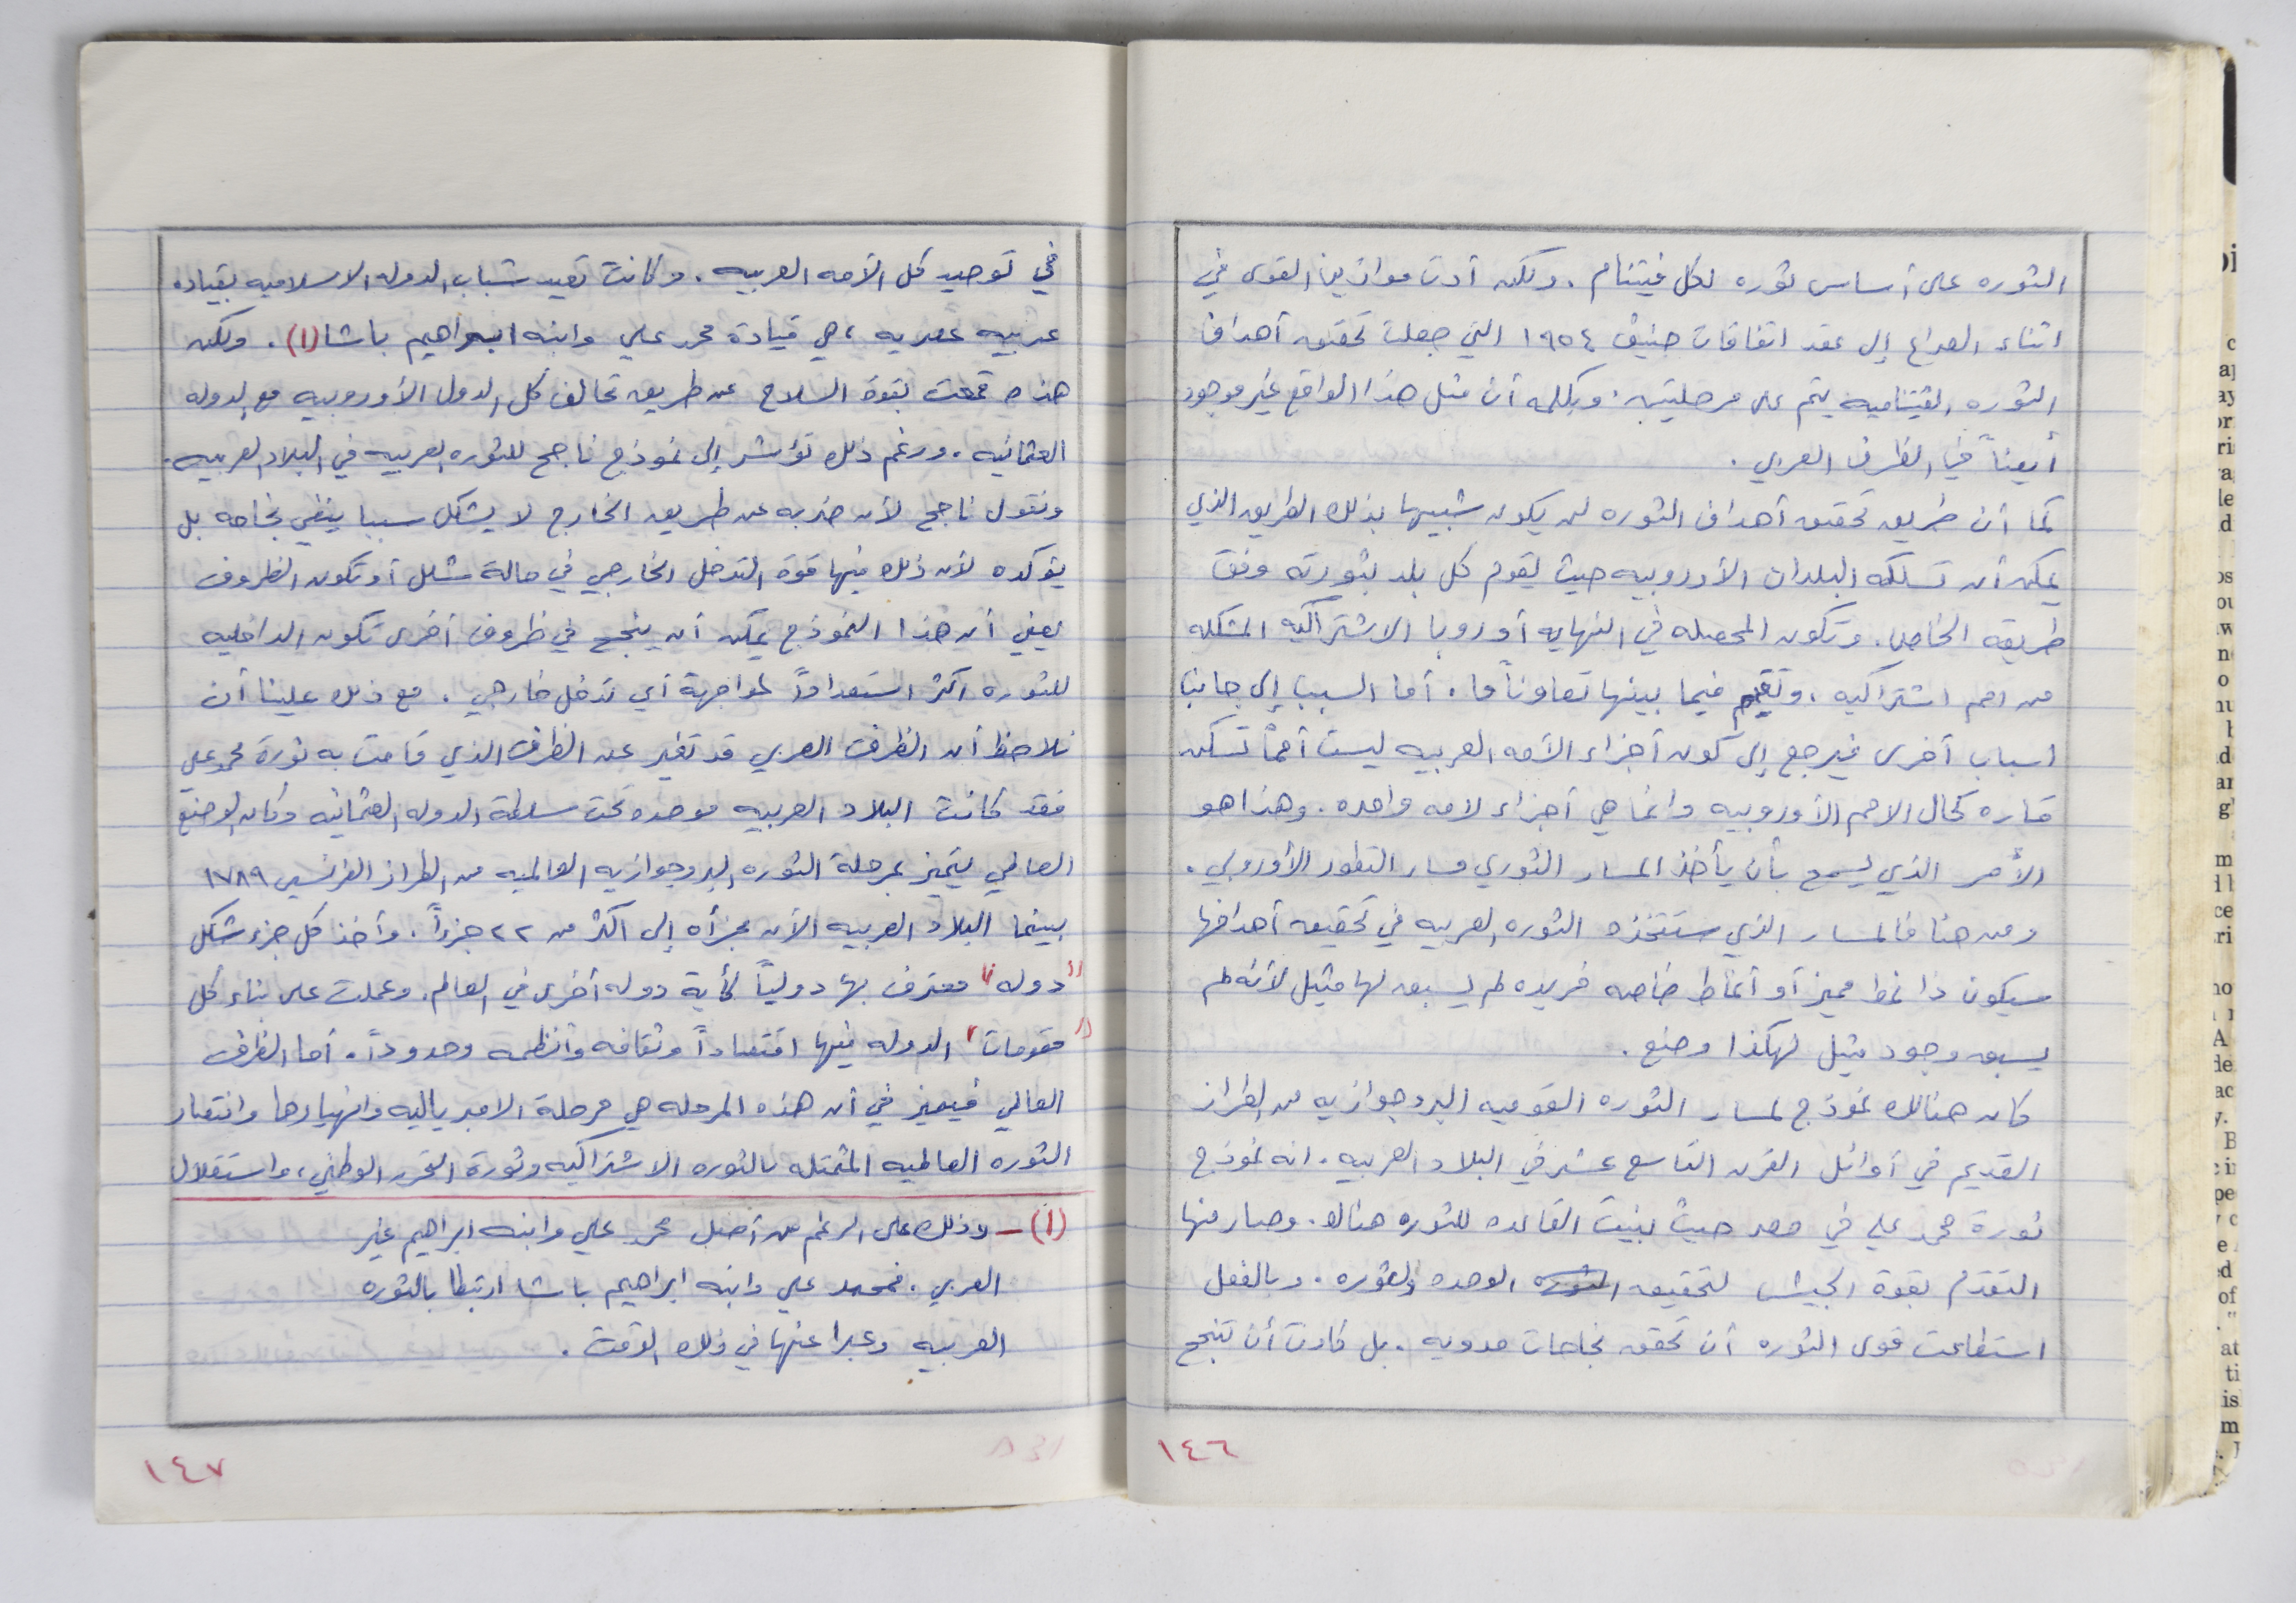 الثوره على أساس ثوره لكل فيتنام . ولكن أدت موازين القوى في
اثناء الصراع إلى عقد اتفاقات جنيف ١٩٥٤ التي جعلت تحقيق أهداف
الثوره الفيتناميه يتم على مرحلتين . وبكلمه أن مثل هذا الواقع غير موجود
أيضاً في الظرف العربي .
كما أن طريق تحقيق أهداف الثوره لن يكون شبيها بذلك الطريق الذي
يمكن أن تسلكه البلدان الأوروبيه حيث يقوم كل بلد بثورته وفق
طريقه الخاص . وتكون المحصله في النهايه أوروبا الاشتراكيه المشكله
من امم اشتراكيه ، وتقيم فيما بينها تعاوناً ما . أما السبب إلى جانب
اسباب أخرى فيرجع إلى كون أجزاء الأمه العربيه ليست أمماً تسكن
قاره كحال الامم الأوروبيه وانما هي أجزاء لامه واحده . وهذا هو
الأمر الذي يسمح بأن يأخذ المسار الثوري مسار التطور الأوروبي .
ومن هنا فالمسار الذي ستتخذه الثوره العربيه في تحقيق أهدافها
سيكون ذا نمط مميز أو أنماط خاصه فريده لم يسبق لها مثيل لأنه لم
يسبق وجود مثيل لهكذا وضع .
كان هنالك نموذج لمسار الثوره القوميه البروجوازيه من الطراز
القديم في أوائل القرن التاسع عشر في البلاد العربيه . انه نموذج
ثورة محمد علي في مصر حيث بنيت القاعده للثوره هناك . وصار منها
التقدم بقوة الجيش لتحقيق الوحده والثوره . وبالفعل
استطاعت قوى الثوره أن تحقق نجاحات مدويه . بل كادت أن تنجح
١٤٦
في توحيد كل الأمه العربيه . وكانت تعيد شباب الدوله الاسلاميه بقياده
عربيه عصريه ، هي قيادة محمد علي وابنه ابراهيم باشا (١) . ولكن
هذه قمعت بقوة السلاح عن طريق تحالف كل الدول الأوروبيه مع الدوله
العثمانيه . ورغم ذلك تؤشر إلى نموذج ناجح للثوره العربيه في البلاد العربيه .
ونقول ناجح لأن ضربه عن طريق الخارج لا يشكل سببا ينفي نجاحه بل
يؤكده لأن ذلك فيها قوة التدخل الخارجي في حالة شلل أو تكون الظروف
يعني أن هذا النموذج يمكن أن ينجح في ظروف أخرى تكون الداخليه
للثوره اكثر استعداداً لمواجهة أي تدخل خارجي . مع ذلك علينا أن
نلاحظ أن الظرف العربي قد تغير عن الظرف الذي قامت به ثورة محمد علي
فقد كانت البلاد العربيه موحده تحت سلطة الدوله العثمانيه وكان الوضع
العالمي يتميز بمرحلة الثوره البروجوازيه العالميه من الطراز الفرنسي ١٧٨٩
بينما البلاد العربيه الآن مجزأه إلى اكثر من ٢٢ جزءاً . وأخذ كل جزء شكل
"دوله" معترف بها دولياً كأية دوله أخرى في العالم . وعملت على بناء كل
"مقومات" الدوله فيها اقتصاداً وثقافه وأنظمه وحدوداً . أما الظرف
العالمي فيتميز في أن هذه المرحله هي مرحلة الامبرياليه وانهيارها وانتصار
الثوره العالميه المتمثله بالثوره الاشتراكيه وثورة التحرر الوطني ، واستقلال
(١) - وذلك على الرغم من أصل محمد علي وابنه ابراهيم غير
العربي . فمحمد علي وابنه ابراهيم باشا ارتبطا بالثوره
العربيه وعبرا عنها في ذلك الوقت .
١٤٧